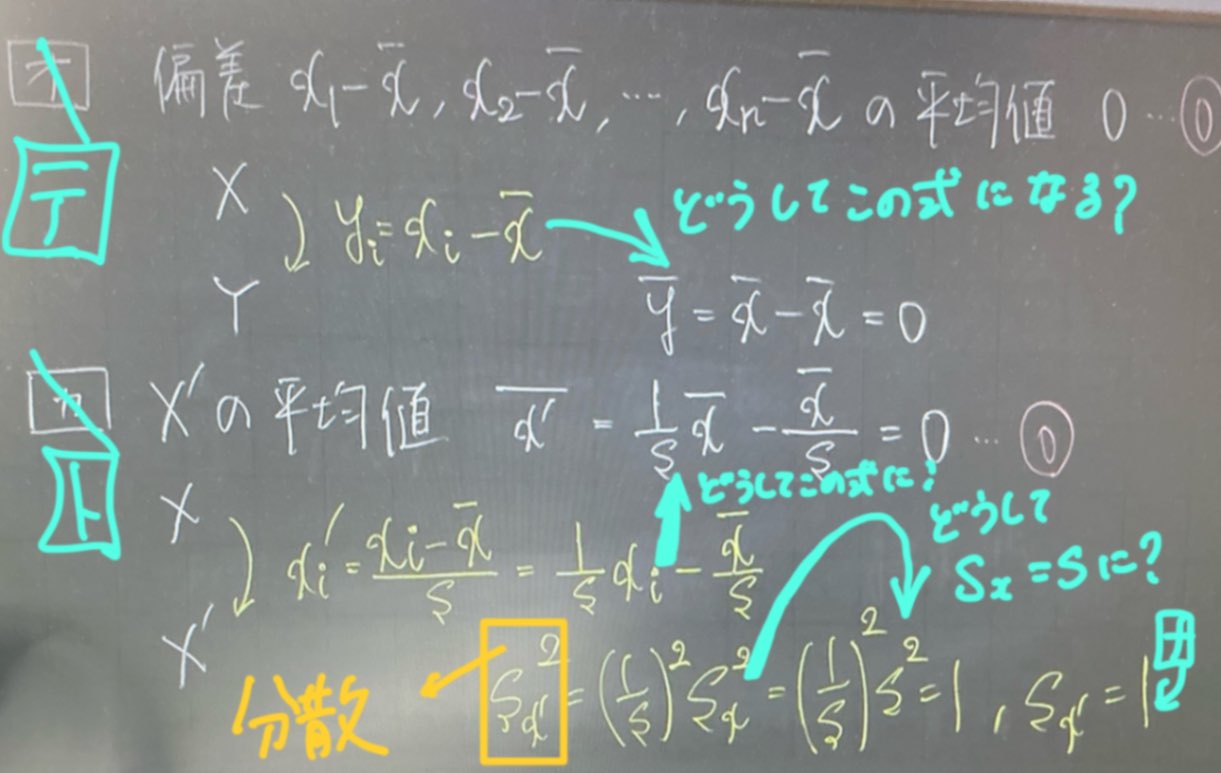 オ テ 偏差 x₁-x̄, x₂-x̄, …, xₙ-x̄ の平均値 0 … ⓪
X
yᵢ=xᵢ-x̄ どうしてこの式になる?
Y
ȳ=x̄-x̄=0
カ ト X'の平均値 x̄'=(1/s)x̄-x̄/s=0 … ⓪
どうしてこの式に?
X
xᵢ'=(xᵢ-x̄)/s=(1/s)xᵢ-x̄/s
どうして
Sx=Sに?
X'
分散 s²ₓ'=(1/s)²s²ₓ=(1/s)²s²=1, sₓ'=1